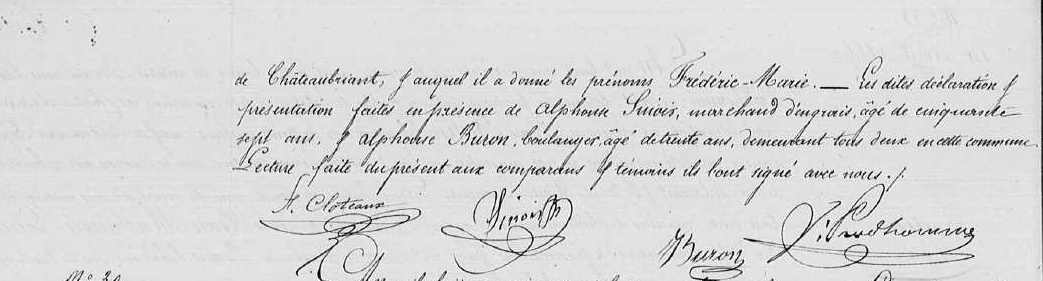 de Châteaubriant, & auquel il a donné les prénoms Frédéric-Marie. — Les dites déclaration &
présentation faites en présence de Alphonse Sinois, marchand d'engrais, âgé de cinquante
sept ans, & Alphonse Buron, boulanger, âgé de trente ans, demeurant tous deux en cette commune
Lecture faite du présent aux comparans & témoins ils l'ont signé avec nous ./.
F. Cloteaux Sinois
Buron Prodhomme
N° 20